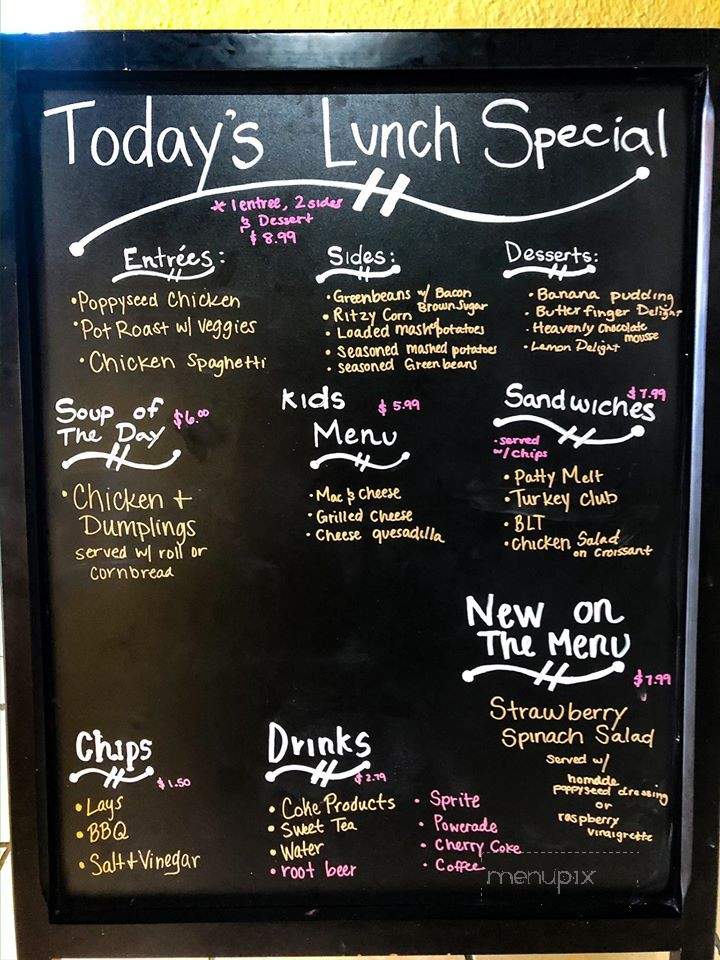 Today's Lunch Special
* 1 entree, 2 sides
& Dessert
$8.99
Entrées:
• Poppyseed Chicken
• Pot Roast w/ Veggies
• Chicken Spaghetti
Sides:
• Greenbeans w/ Bacon Brown Sugar
• Ritzy Corn
• Loaded mashpotatoes
• Seasoned mashed potatoes
• seasoned Green beans
Desserts:
• Banana pudding
• Butterfinger Delight
• Heavenly Chocolate mousse
• Lemon Delight
Soup of
The Day
$6.00
• Chicken +
Dumplings
served w/ roll or
cornbread
Kids
Menu
$5.99
• Mac & Cheese
• Grilled Cheese
• Cheese quesadilla
Sandwiches
$7.99
• served
w/ chips
• Patty Melt
• Turkey Club
• BLT
• Chicken Salad
on Croissant
New on
The Menu
$7.99
Strawberry
Spinach Salad
Served w/
homade
poppyseed dressing
or
raspberry
vinaigrette
Chips
$1.50
• Lays
• BBQ
• Salt + Vinegar
Drinks
$2.79
• Coke Products
• Sweet Tea
• Water
• root beer
• Sprite
• Powerade
• Cherry Coke
• Coffee
menupix